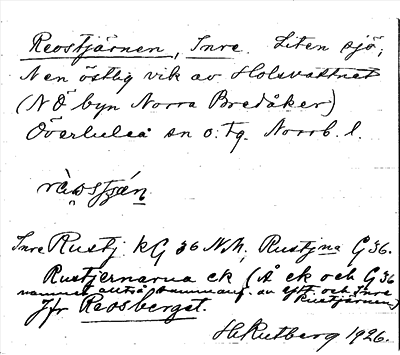 Reostjärnen, Inre. Liten sjö,
N en östlig vik av Holsvattnet
(NÖ byn Norra Bredåker)
Överluleå sn o. Tg. Norrb. l.
Inre Rustj kG 36 N.M., Rustjna G 36.
Rustjernarna ek (Å ek och G 36
namnet alltså sammanf. av Yttre och Inre
Rustjärnen)
Jfr Reosberget.
H. Rutberg 1926.